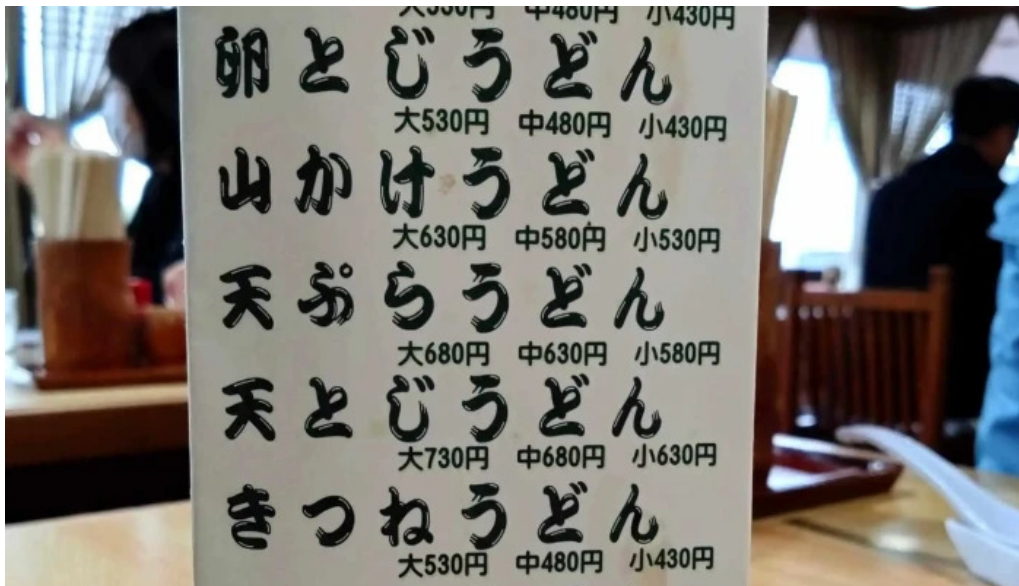 大530円 中480円 小430円
卵とじうどん
大530円 中480円 小430円
山かけうどん
大630円 中580円 小530円
天ぷらうどん
大680円 中630円 小580円
天とじうどん
大730円 中680円 小630円
きつねうどん
大530円 中480円 小430円